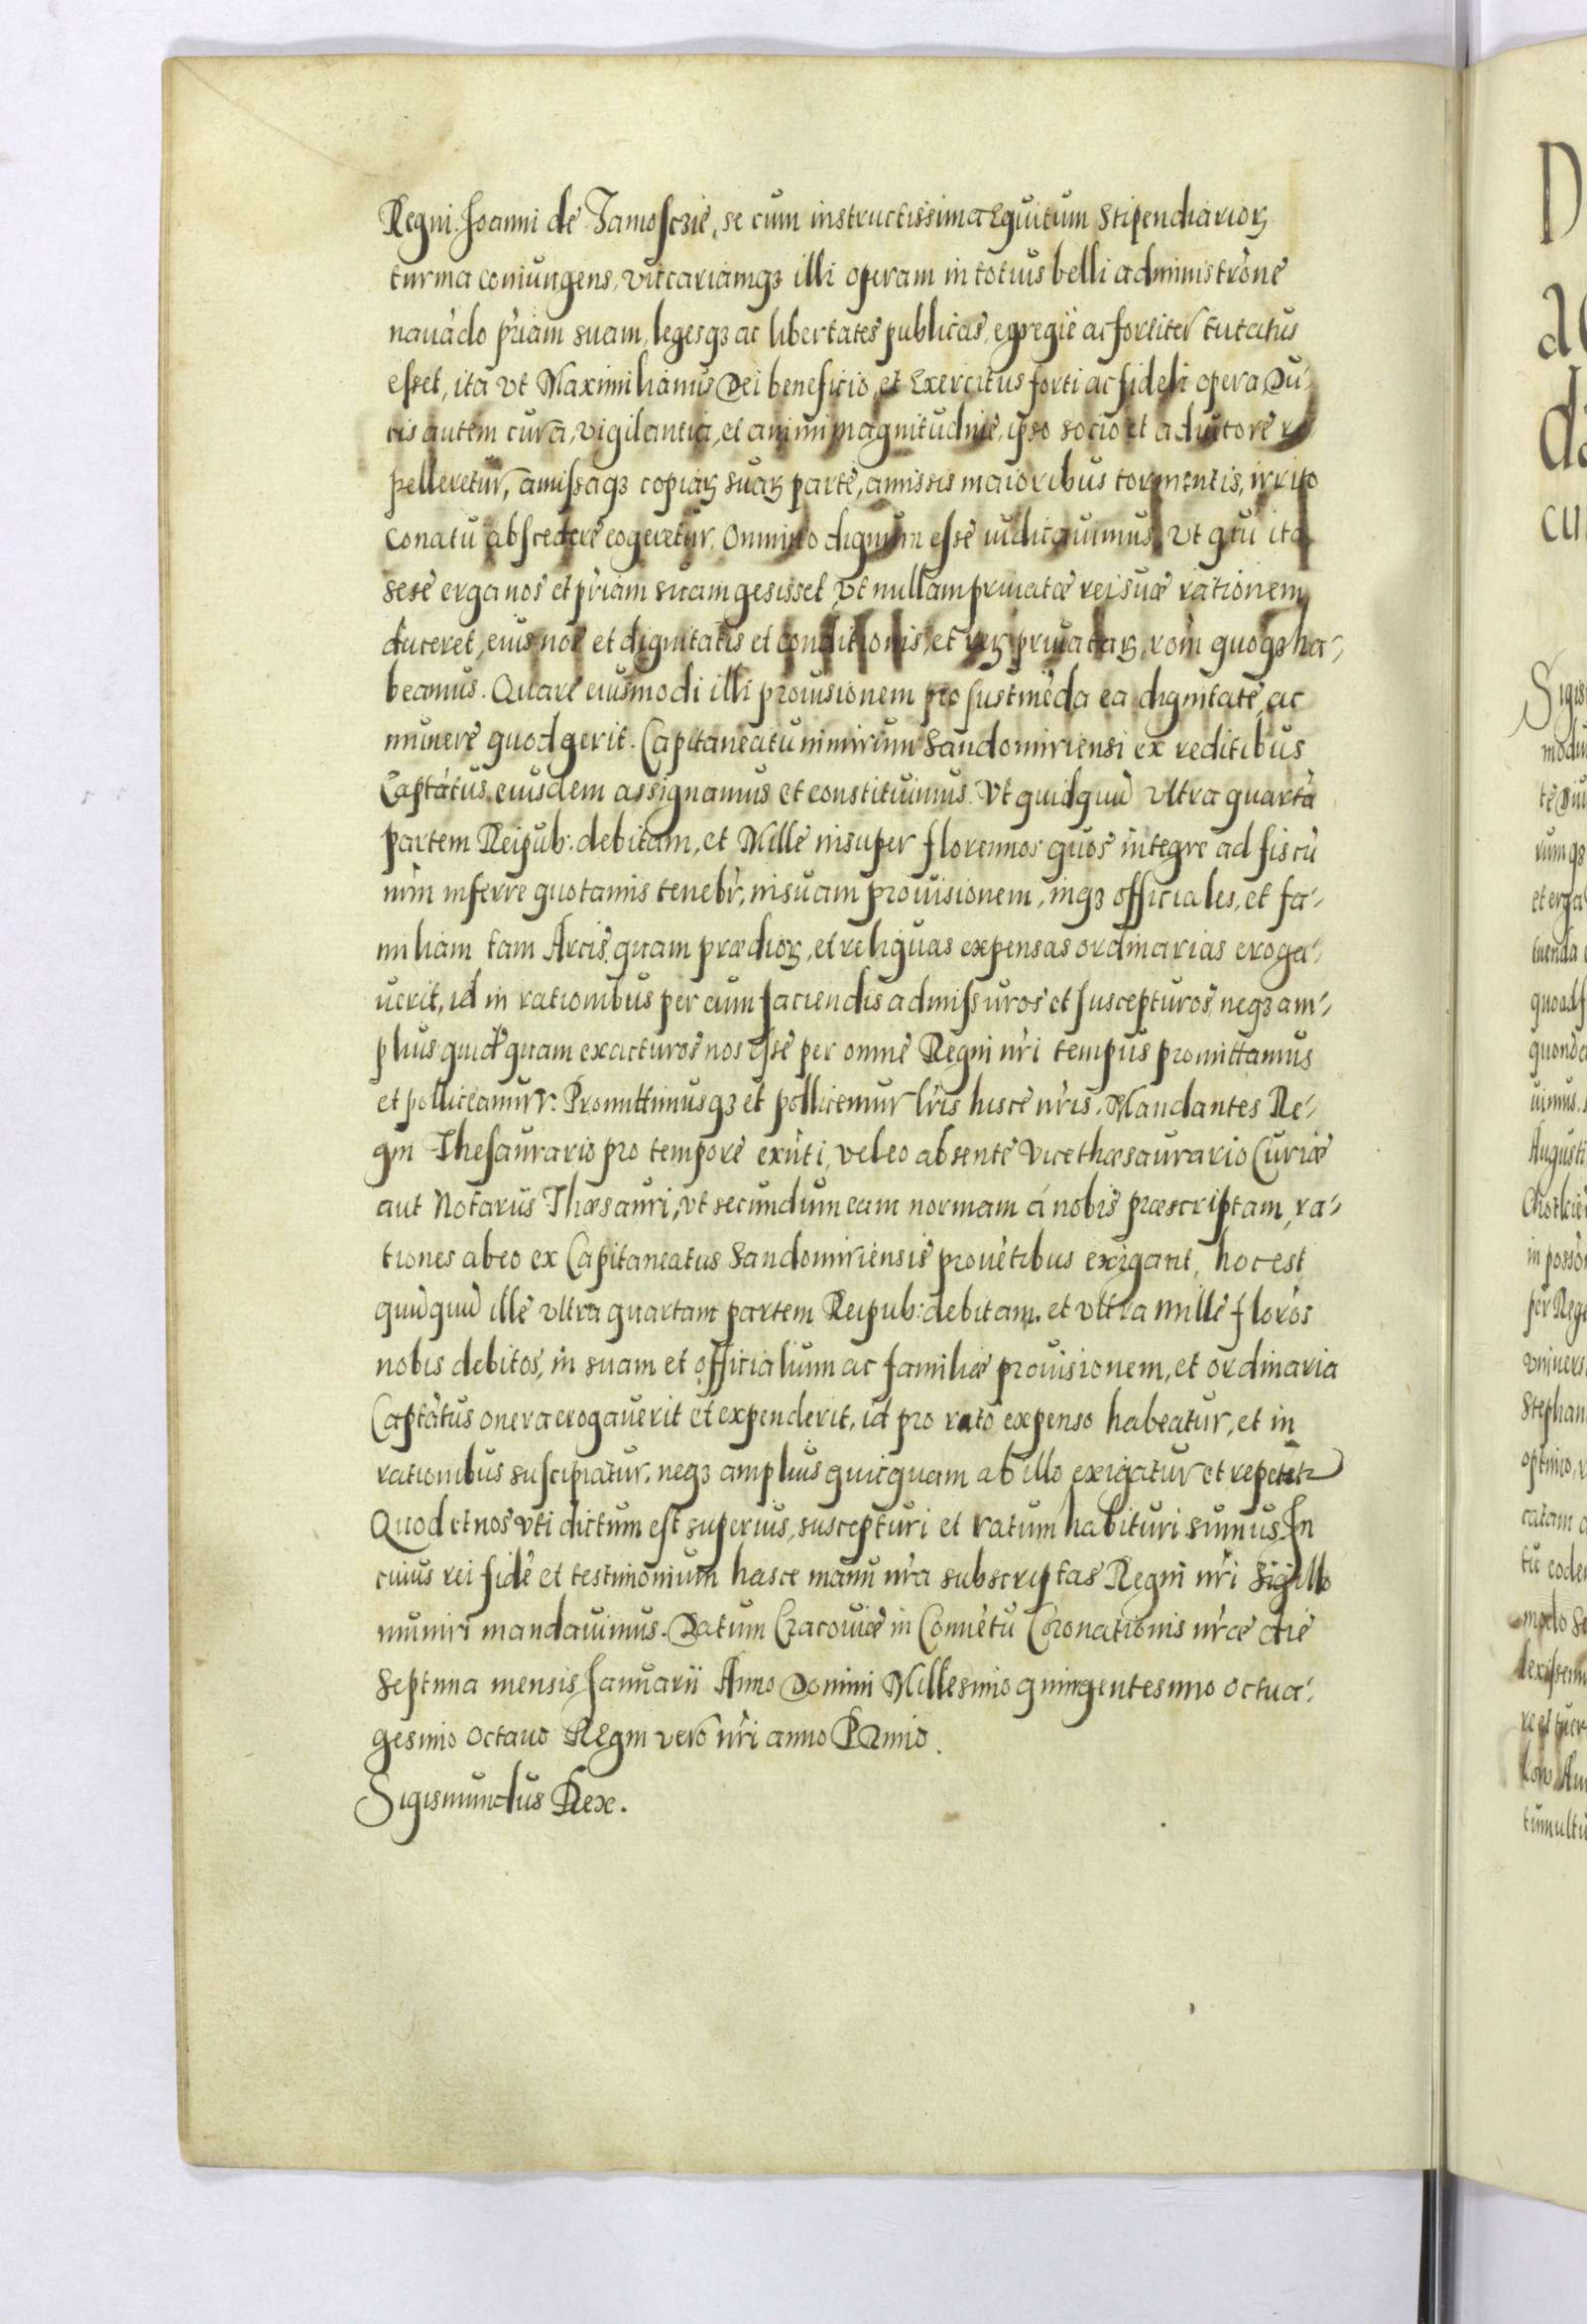 Regni Joanni de Zamosczie, se cum instructissima Equitum Stipendiarioꝝ
turma coniungens, vicariamqꝫ illi operam in totius belli administrõne
nauãdo p̃riam suam, legesqꝫ ac libertates publicas, egregie ac fortiter tutatus
esset, ita vt Maximilianus Dei beneficio, et Exercitus forti ac fideli opera Du-
cis autem cura, vigilantia, et animi magnitudine, ipso socio et adiutore re
pelleretur, amissaqꝫ copiaꝝ suaꝝ parte, amissis maioribus tormentis, irrito
conatu abscedere cogeretur. Omnino dignum esse iudicauimus, vt qui ita
sese erga nos et p̃riam suam gesisset, vt nullam priuatæ rei suæ rationem
duceret, eius nos et dignitatis et conditionis, et reꝝ priuataꝝ, rõm quoqꝫ ha-,
beamus. Quare eiusmodi illi prouisionem pro sustinẽda ea dignitate, ac
munere quod gerit. Capitaneatu nimirum Sandomiriensi ex reditibus
Captãtus eiusdem assignamus et constituimus. Vt quidquid vltra quartã
partem Reipub: debitam, et Mille insuper florennos quos integre ad fiscũ
nr̃m inferre quotannis tenebr̃, in suam prouisionem, inqꝫ officiales, et fa-,
miliam tam Arcis quam prædioꝝ, et reliquas expensas ordinarias eroga-,
uerit, id in rationibus per eum faciendis admissuros et suscepturos, neqꝫ am-,
plius quidquam exacturos nos esse per omne Regni nr̃i tempus promittamus
et polliceamur. Promittimusqꝫ et pollicemur lr̃is hisce nr̃is. Mandantes Re-,
gni Thesaurario pro tempore exñti, vel eo absente Vicethæsaurario Curiæ
aut Notariis Thæsauri, vt secundum eam normam à nobis præscriptam, ra-,
tiones ab eo ex Capitaneatus Sandomiriensis prouẽtibus exigant, hoc est
quidquid ille vltra quartam partem Reipub: debitam. et vltra mille florõs
nobis debitos, in suam et officialium ac familiæ prouisionem, et ordinaria
Captãtus onera erogauerit et expenderit, id pro rato expenso habeatur, et in
rationibus suscipiatur. neqꝫ amplius quicquam ab illo exigatur et repetat̃
Quod et nos vti dictum est superius, suscepturi et ratum habituri sumus. In
cuius rei fidẽ et testimonium hasce manu nr̃a subscriptas Regni nr̃i Sigillo
muniri mandauimus. Datum Cracouiæ in Conuẽtu Coronationis nr̃æ die
Septima mensis Januarii Anno Domini Millesimo quingentesimo octua-,
gesimo Octauo REgni vero nr̃i anno PRimo.
Sigismundus Rex.